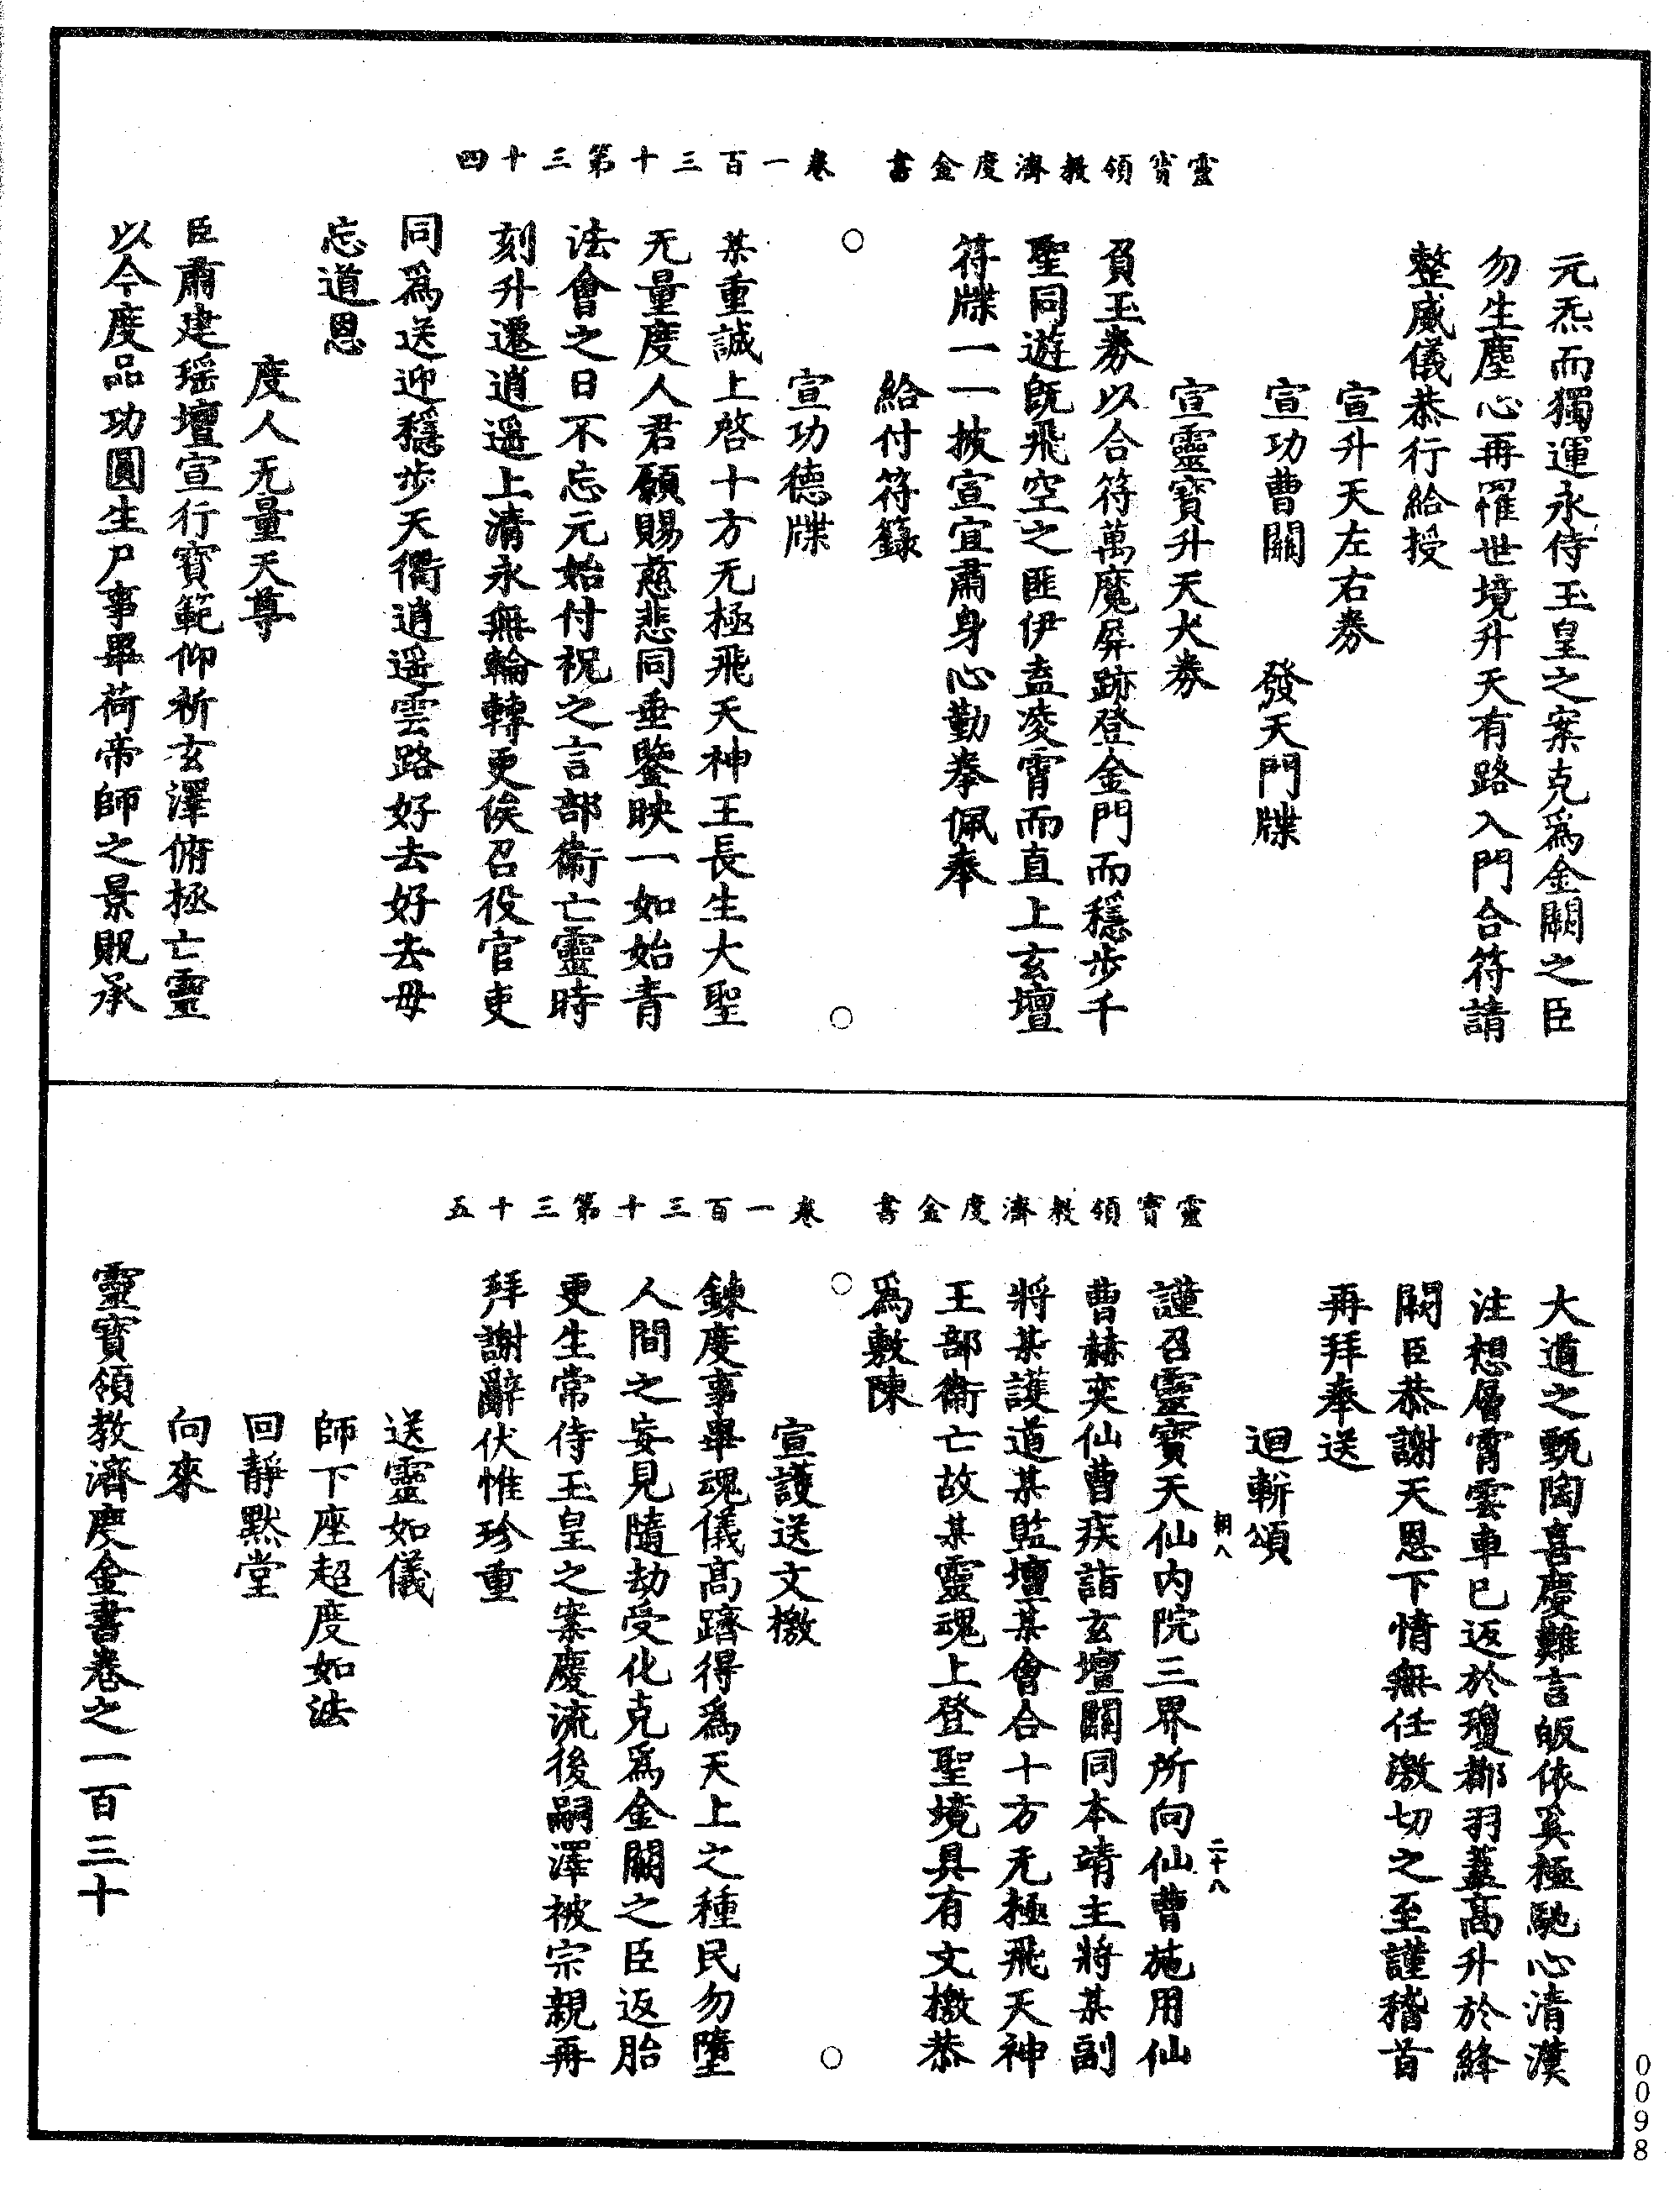 靈寶領教濟度金書　卷一百三十第三十四
元炁而獨運永侍玉皇之案克爲金闕之臣
勿生塵心再罹世境升天有路入門合符請
整威儀恭行給授
宣升天左右券
宣功曹關　發天門牒
宣靈寶升天大券
負玉券以合符萬魔屏跡登金門而穩步千
聖同遊旣飛空之匪伊盍凌霄而直上玄壇
符牒一一披宣宜肅身心勤拳佩奉
給付符籙
○　○
宣功德牒
某重誠上啓十方无極飛天神王長生大聖
无量度人君願賜慈悲同垂鑒映一如始青
法會之日不忘元始付祝之言部衛亡靈時
刻升遷逍遥上清永無輪轉更俟召役官吏
同爲送迎穩步天衢逍遥雲路好去好去毋
忘道恩
度人无量天尊
臣肅建瑶壇宣行寶範仰祈玄澤俯拯亡靈
以今度品功圓生尸事畢荷帝師之景貺承
靈寶領教濟度金書　卷一百三十第三十五
大道之甄陶喜慶難言皈依奚極馳心清漢
注想層霄雲車已返於瓊都羽蓋高升於絳
闕臣恭謝天恩下情無任激切之至謹稽首
再拜奉送
迴斬頌
朝八　二十八
謹召靈寶天仙内院三界所向仙曹施用仙
曹赫奕仙曹疾詣玄壇關同本靖主將某副
將某護道某監壇某會合十方无極飛天神
王部衛亡故某靈魂上登聖境具有文檄恭
爲敷陳
○　○
宣護送文檄
鍊度事畢魂儀高躋得爲天上之種民勿墮
人間之妄見隨劫受化克爲金闕之臣返胎
更生常侍玉皇之案慶流後嗣澤被宗親再
拜謝辭伏惟珍重
送靈如儀
師下座超度如法
回靜默堂
向來
靈寶領教濟度金書卷之一百三十
0098